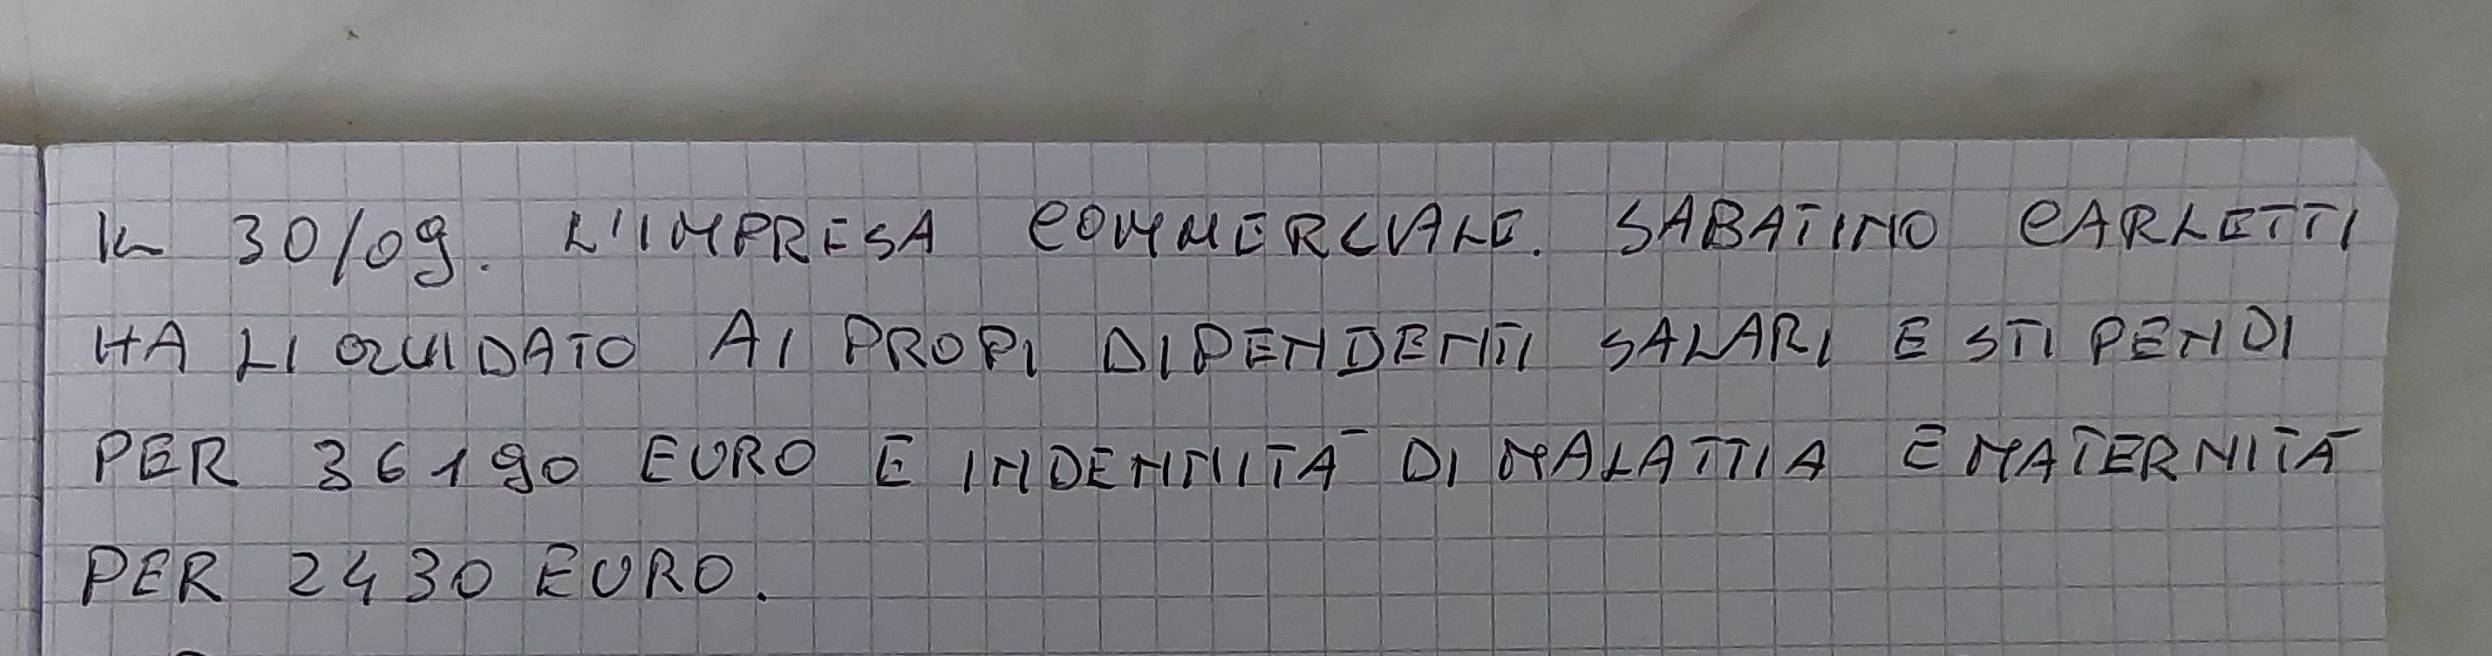 IL 30/09. L'IMPRESA COMMERCIALE. SABATINO CARLETTI
HA LIQUIDATO AI PROPI DIPENDENTI SALARI E STIPENDI
PER 36190 EURO E INDENNITÀ DI MALATTIA E MATERNITÀ
PER 2430 EURO.